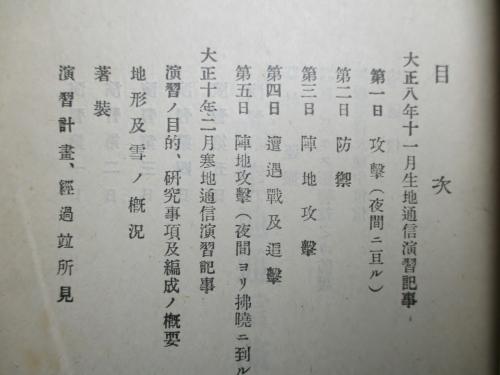 目次
大正八年十一月生地通信演習記事
第一日 攻擊(夜間ニ亘ル)
第二日 防禦
第三日 陣地攻擊
第四日 遭遇戰及追擊
第五日 陣地攻擊(夜間ヨリ拂曉ニ到ル
大正十年二月寒地通信演習記事
演習ノ目的、硏究事項及編成ノ槪要
地形及雪ノ槪況
著裝
演習計畫、經過竝所見